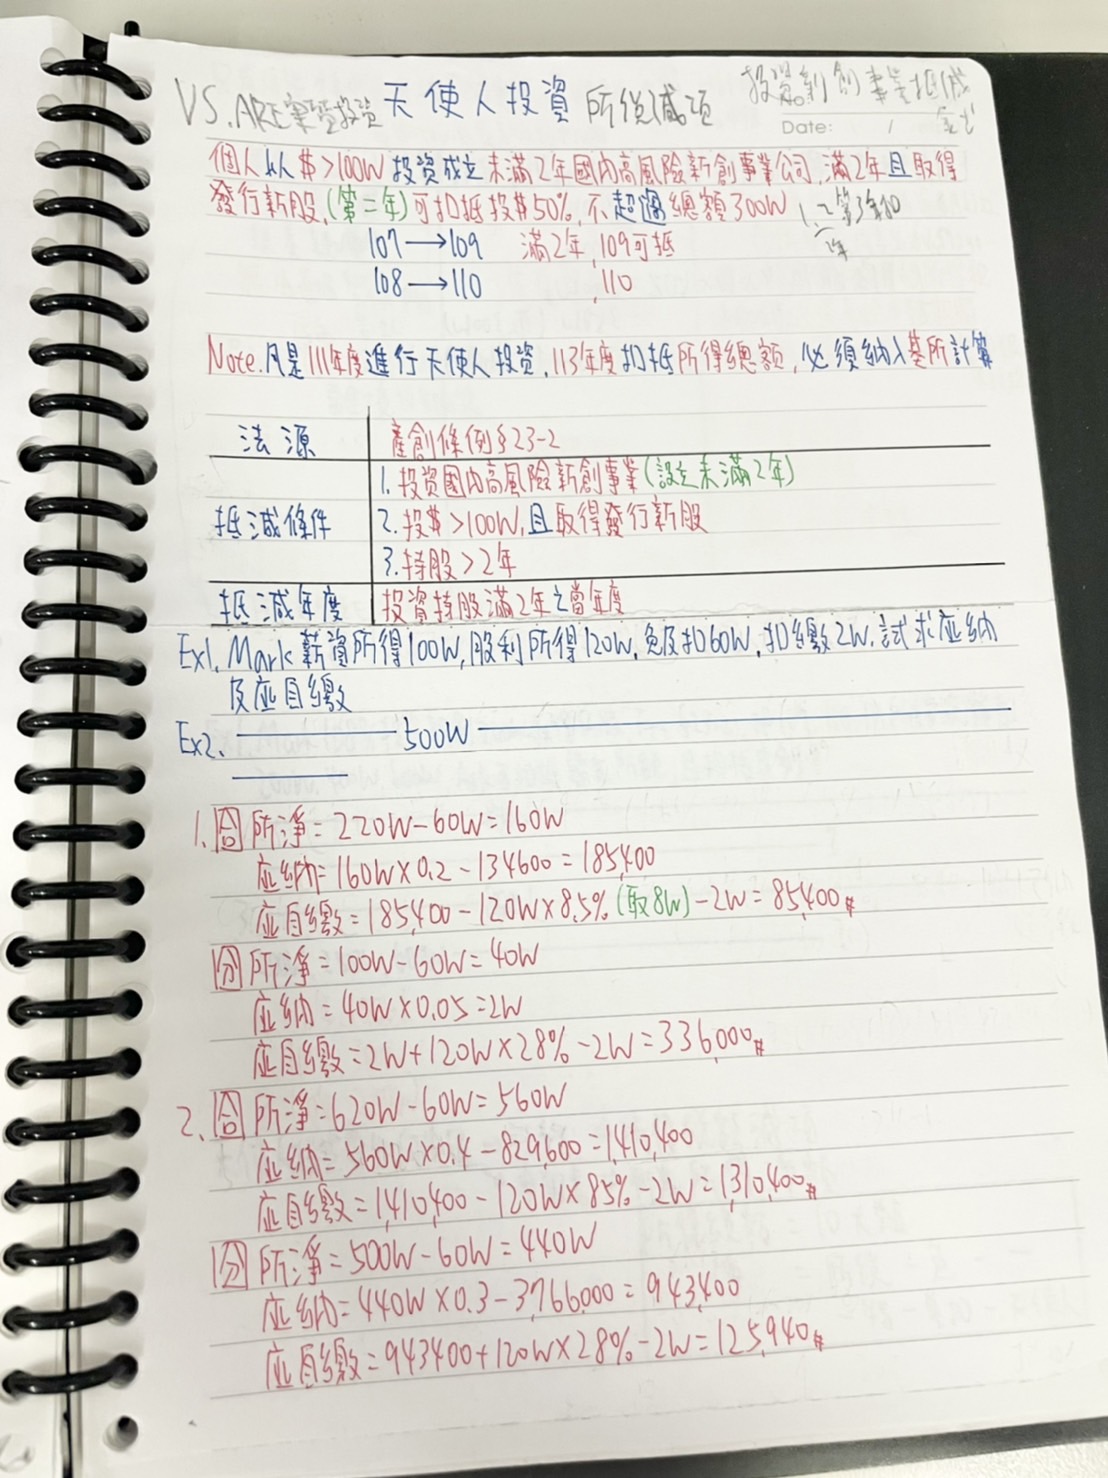 VS. 天使人投資 所得減項
投資新創事業抵減
Date: /
個人以$>100W投資成立未滿2年國內高風險新創事業公司,滿2年且取得
發行新股,(第二年)可扣抵投$50%,不超過總額300W
107→109 滿2年,109可抵
108→110 ,110
Note.凡是111年度進行天使人投資,113年度扣抵所得總額,必須納入基所計算
法源 產創條例§23-2
抵減條件
1.投資國內高風險新創事業(設立未滿2年)
2.投$>100W,且取得發行新股
3.持股>2年
抵減年度 投資持股滿2年之當年度
Ex1. Mark薪資所得100W,股利所得120W,免及扣60W,扣繳2W,試求应納
及应自繳
Ex2. 500W
1.合 所淨=220W-60W=160W
应納=160W×0.2-134600=185,400
应自繳=185,400-120W×8.5%(取8W)-2W=85,400#
分 所淨=100W-60W=40W
应納=40W×0.05=2W
应自繳=2W+120W×28%-2W=336,000#
2.合 所淨=620W-60W=560W
应納=560W×0.4-829,600=1,410,400
应自繳=1,410,400-120W×85%-2W=1,310,400#
分 所淨=500W-60W=440W
应納=440W×0.3-3,766,000=943,400
应自繳=943400+120W×28%-2W=125,940#